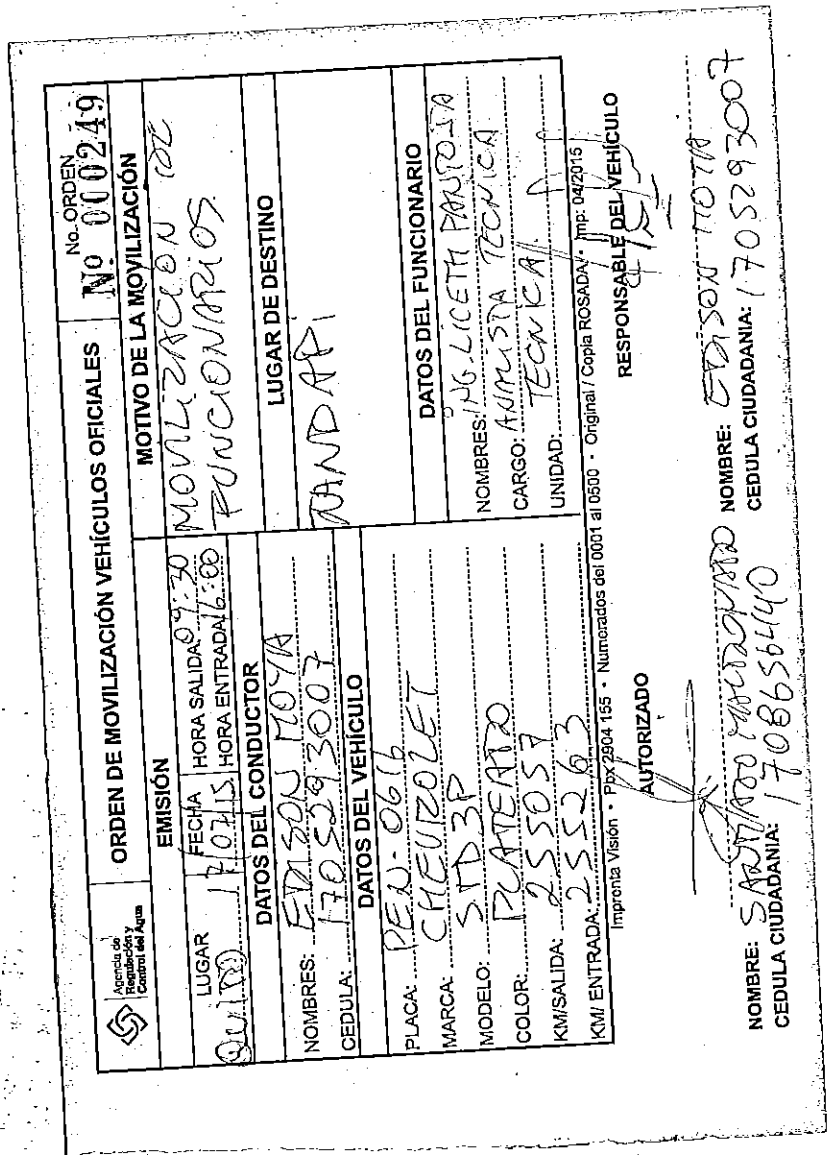 Agencia de
Regulación y
Control del Agua
ORDEN DE MOVILIZACIÓN VEHÍCULOS OFICIALES
No. ORDEN
No 000249
EMISIÓN
LUGAR
FECHA
HORA SALIDA 09:30
QUITO 17/07/15
HORA ENTRADA 16:00
DATOS DEL CONDUCTOR
NOMBRES: EDISON MOYA
CEDULA: 1705293007
DATOS DEL VEHÍCULO
PLACA: PEN-0616
MARCA: CHEVROLET
MODELO: 5TD3P
COLOR: PLATEADO
KM/SALIDA: 255057
KM/ ENTRADA: 255263
MOTIVO DE LA MOVILIZACIÓN
MOVILIZACION DE
FUNCIONARIOS.
LUGAR DE DESTINO
TANDAPI
DATOS DEL FUNCIONARIO
NOMBRES: ING. LICETH PANTOJA
CARGO: ANALISTA TECNICA
UNIDAD: TECNICA.
Impronta Visión • Pbx 2904 155 • Numerados del 0001 al 0500 • Original / Copia ROSADA • Imp: 04/2015
AUTORIZADO
RESPONSABLE DEL VEHÍCULO
NOMBRE: SANTIAGO MALDONADO
CEDULA CIUDADANIA: 1708656440
NOMBRE: EDISON MOYA
CEDULA CIUDADANIA: 1705293007